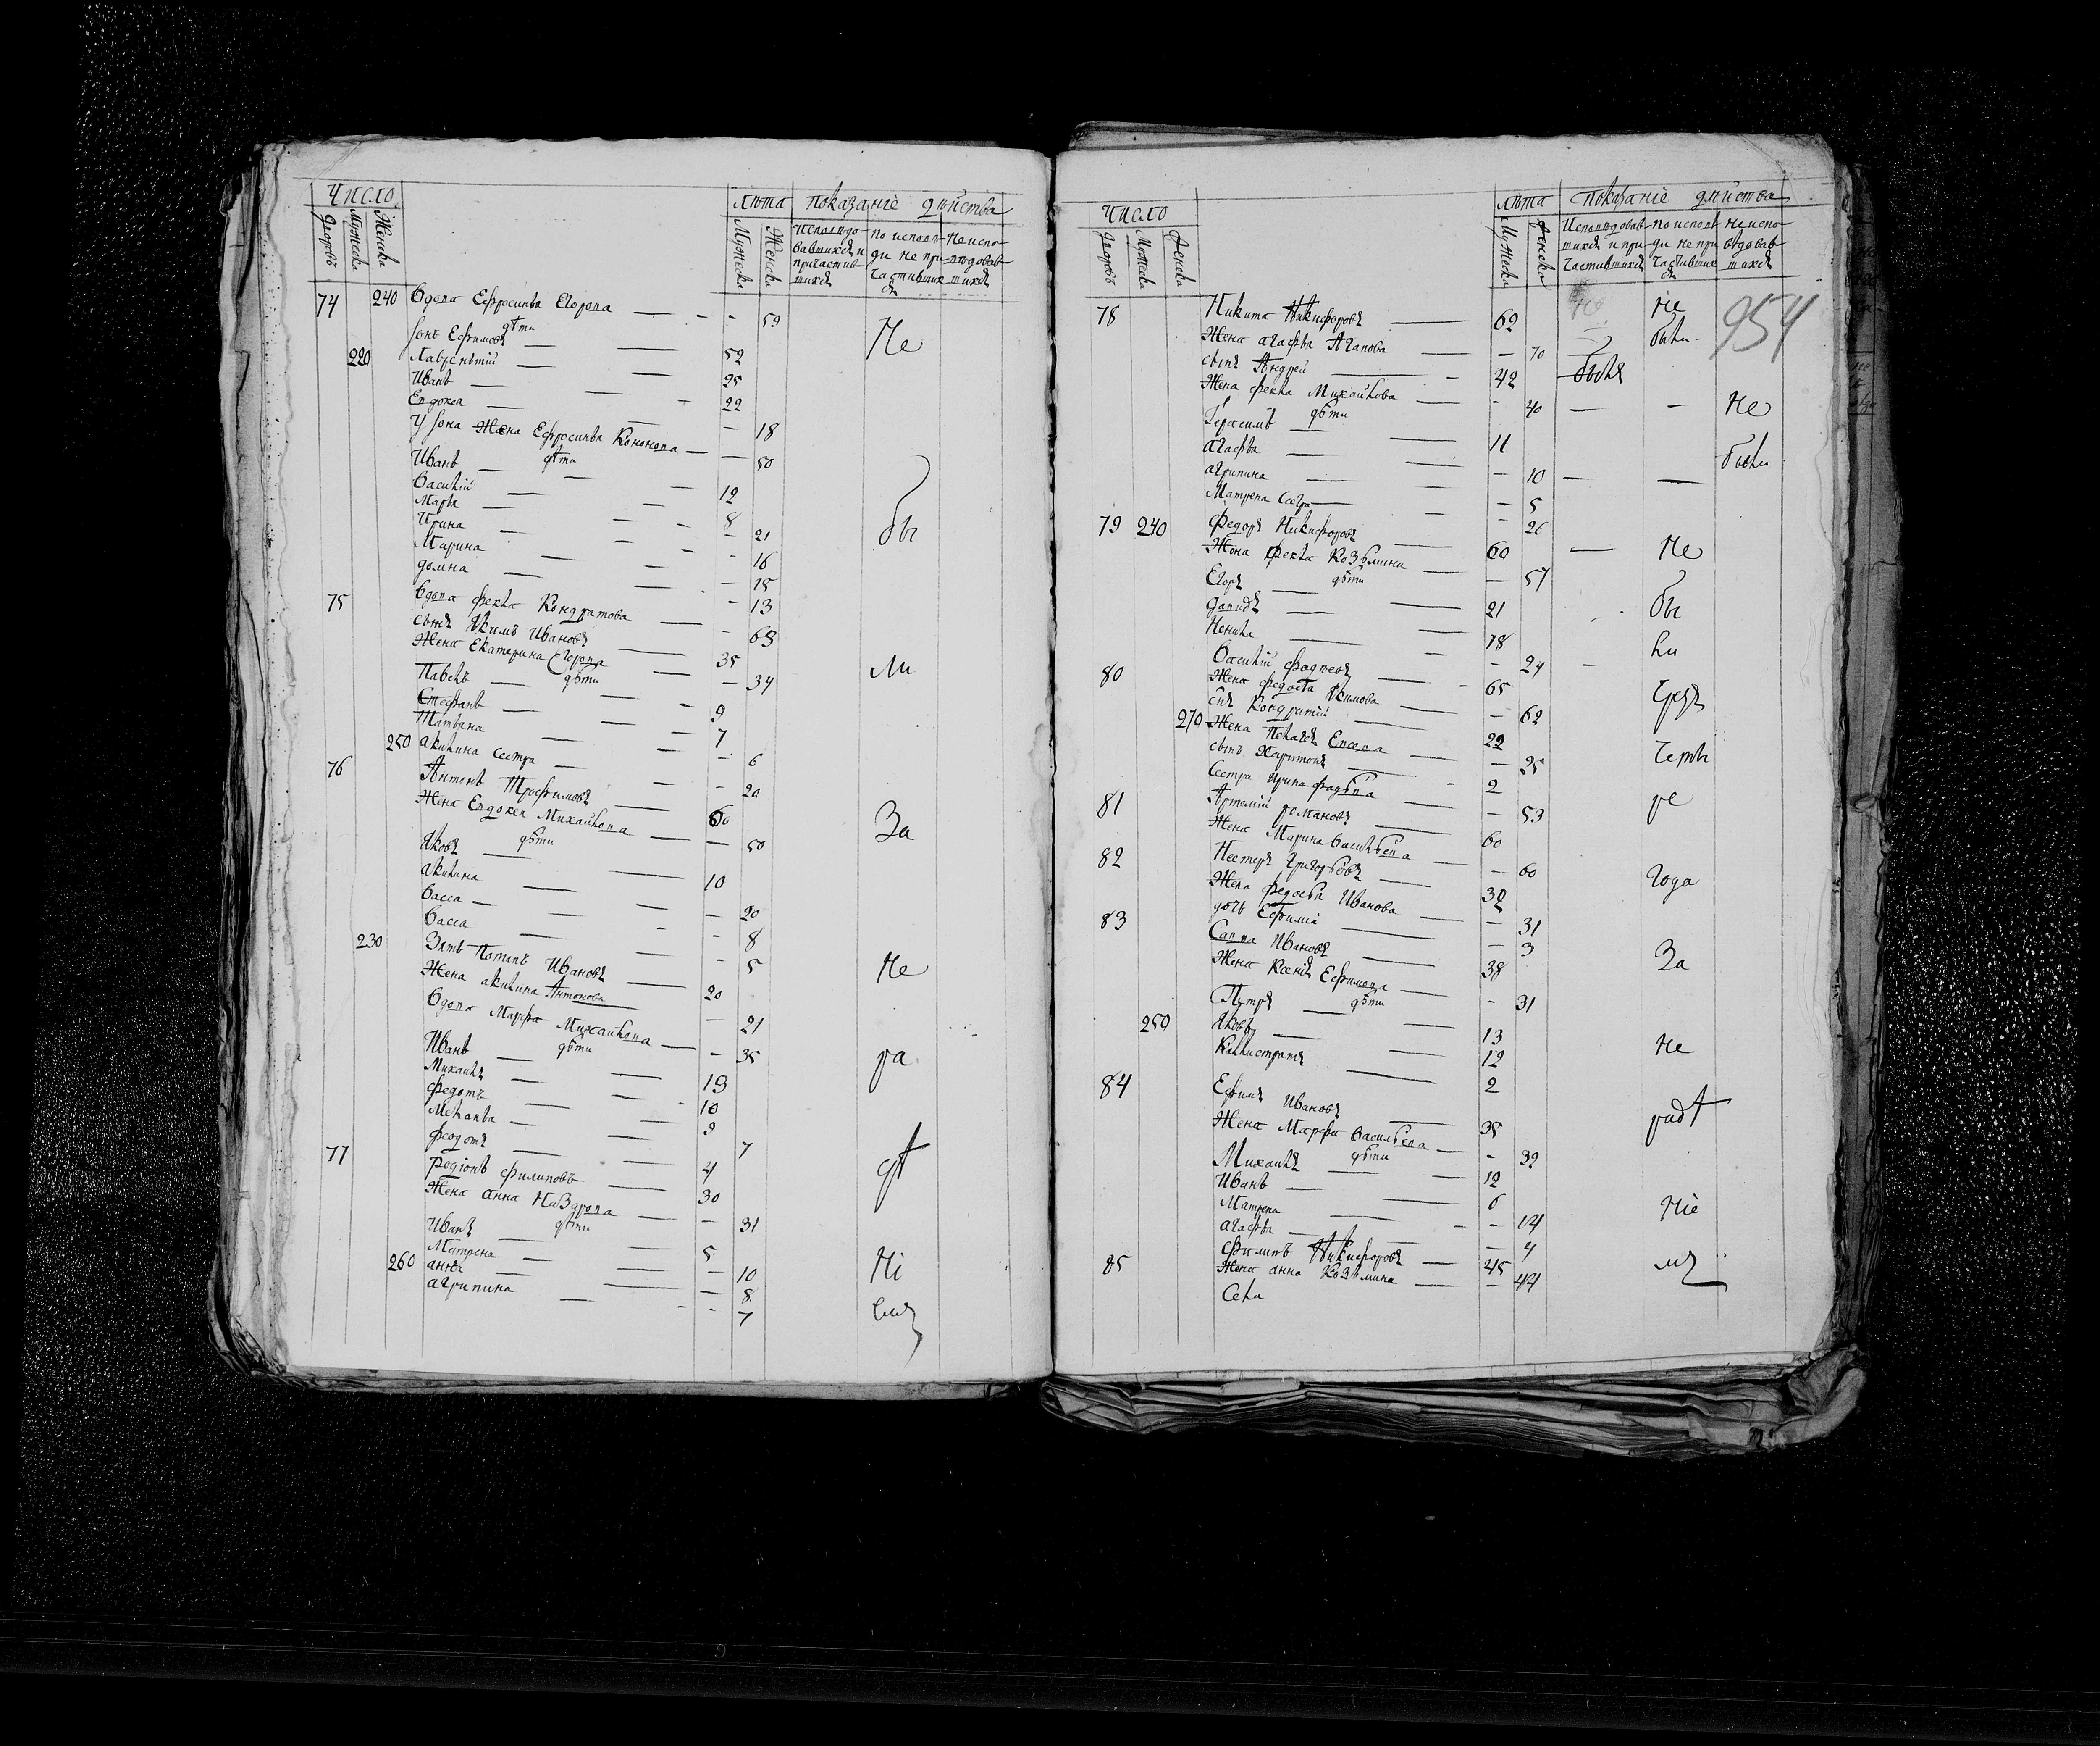 Число
Дворовъ
Мужеска
Женска
лѣта
Мужеска
Женска
показаніе дѣйства
Исповѣдовавшихся и причастившихся
по исповѣди не причастившихся
не исповѣдовавшихся
74 240 Вдова Ефросинья Егорова — 59
дѣти
Іонъ Ефимовъ — 52
220 Лаврентій — 25
Иванъ — 22
Евдокея — 18
У Іона Жена Ефросинья Кононова — 50
дѣти
Иванъ — 12
Василій — 8
Марья — 21
Ирина — 16
Марина — 15
Домна — 13
75 Вдова Фекла Кондратова — 63
сынъ Якимъ Ивановъ — 35
Жена Екатерина Егорова — 34
дѣти
Павелъ — 9
Стефанъ — 7
Татьяна — 6
250 Акилина сестра — 20
76 Антонъ Трофимовъ — 60
Жена Евдокея Михайлова — 50
дѣти
Яковъ — 10
Акилина — 20
Васса — 8
Васса — 5
230 Зять Потапъ Ивановъ — 20
Жена Акилина Антонова — 21
Вдова Марфа Михайлова — 35
дѣти
Иванъ — 13
Михайлъ — 10
Федотъ — 9
Меланья — 7
Федотъ — 4
77 Родіонъ Филиповъ — 30
Жена Анна Назарова — 31
дѣти
Иванъ — 5
Матрена — 10
260 Анна — 8
Агрипина — 7
Не
бы
ли
За
не
ра
дѣ
ні
емъ
Число
Дворовъ
Мужеска
Женска
лѣта
Мужеска
Женска
показаніе дѣйства
Исповѣдовавшихся и причастившихся
по исповѣди не причастившихся
не исповѣдовавшихся
954
78 Никита Никифоровъ — 62
Жена Агафья Агапова — 70
сынъ Андрей — 42
Жена Фекла Михайлова — 40
дѣти
Герасимъ — 11
Агафья — 10
Агрипина — 5
Матрена Сестра — 26
79 240 Федоръ Никифоровъ — 60
Жена Фекла Козьмина — 57
дѣти
Егоръ — 21
Давидъ — 18
Ненила — 24
80 Василій Фадѣевъ — 65
Жена Федосья Якимова — 62
снъ Кондратій — 22
270 Жена Пелагея Евсева — 25
сынъ Харитонъ — 2
Сестра Ирина Фадѣева — 53
81 Артемій Романовъ — 60
Жена Марина Васильева — 60
82 Нестеръ Григорьевъ — 32
Жена Федосья Ивановa — 31
дочь Ефимія — 3
83 Савва Ивановъ — 38
Жена Ксенія Ефимова — 31
дѣти
Петръ — 13
250 Яковъ — 12
Калистратъ — 2
84 Ефимъ Ивановъ — 35
Жена Марфа Васильева — 32
дѣти
Михайлъ — 12
Иванъ — 6
Матрена — 14
Агафья — 4
85 Филипъ Никифоровъ — 45
Жена Анна Козьмина — 44
не
были
быля
Не
были
Не
бы
ли
Чрезъ
четы
ре
года
За
не
радѣ
ніе
мъ